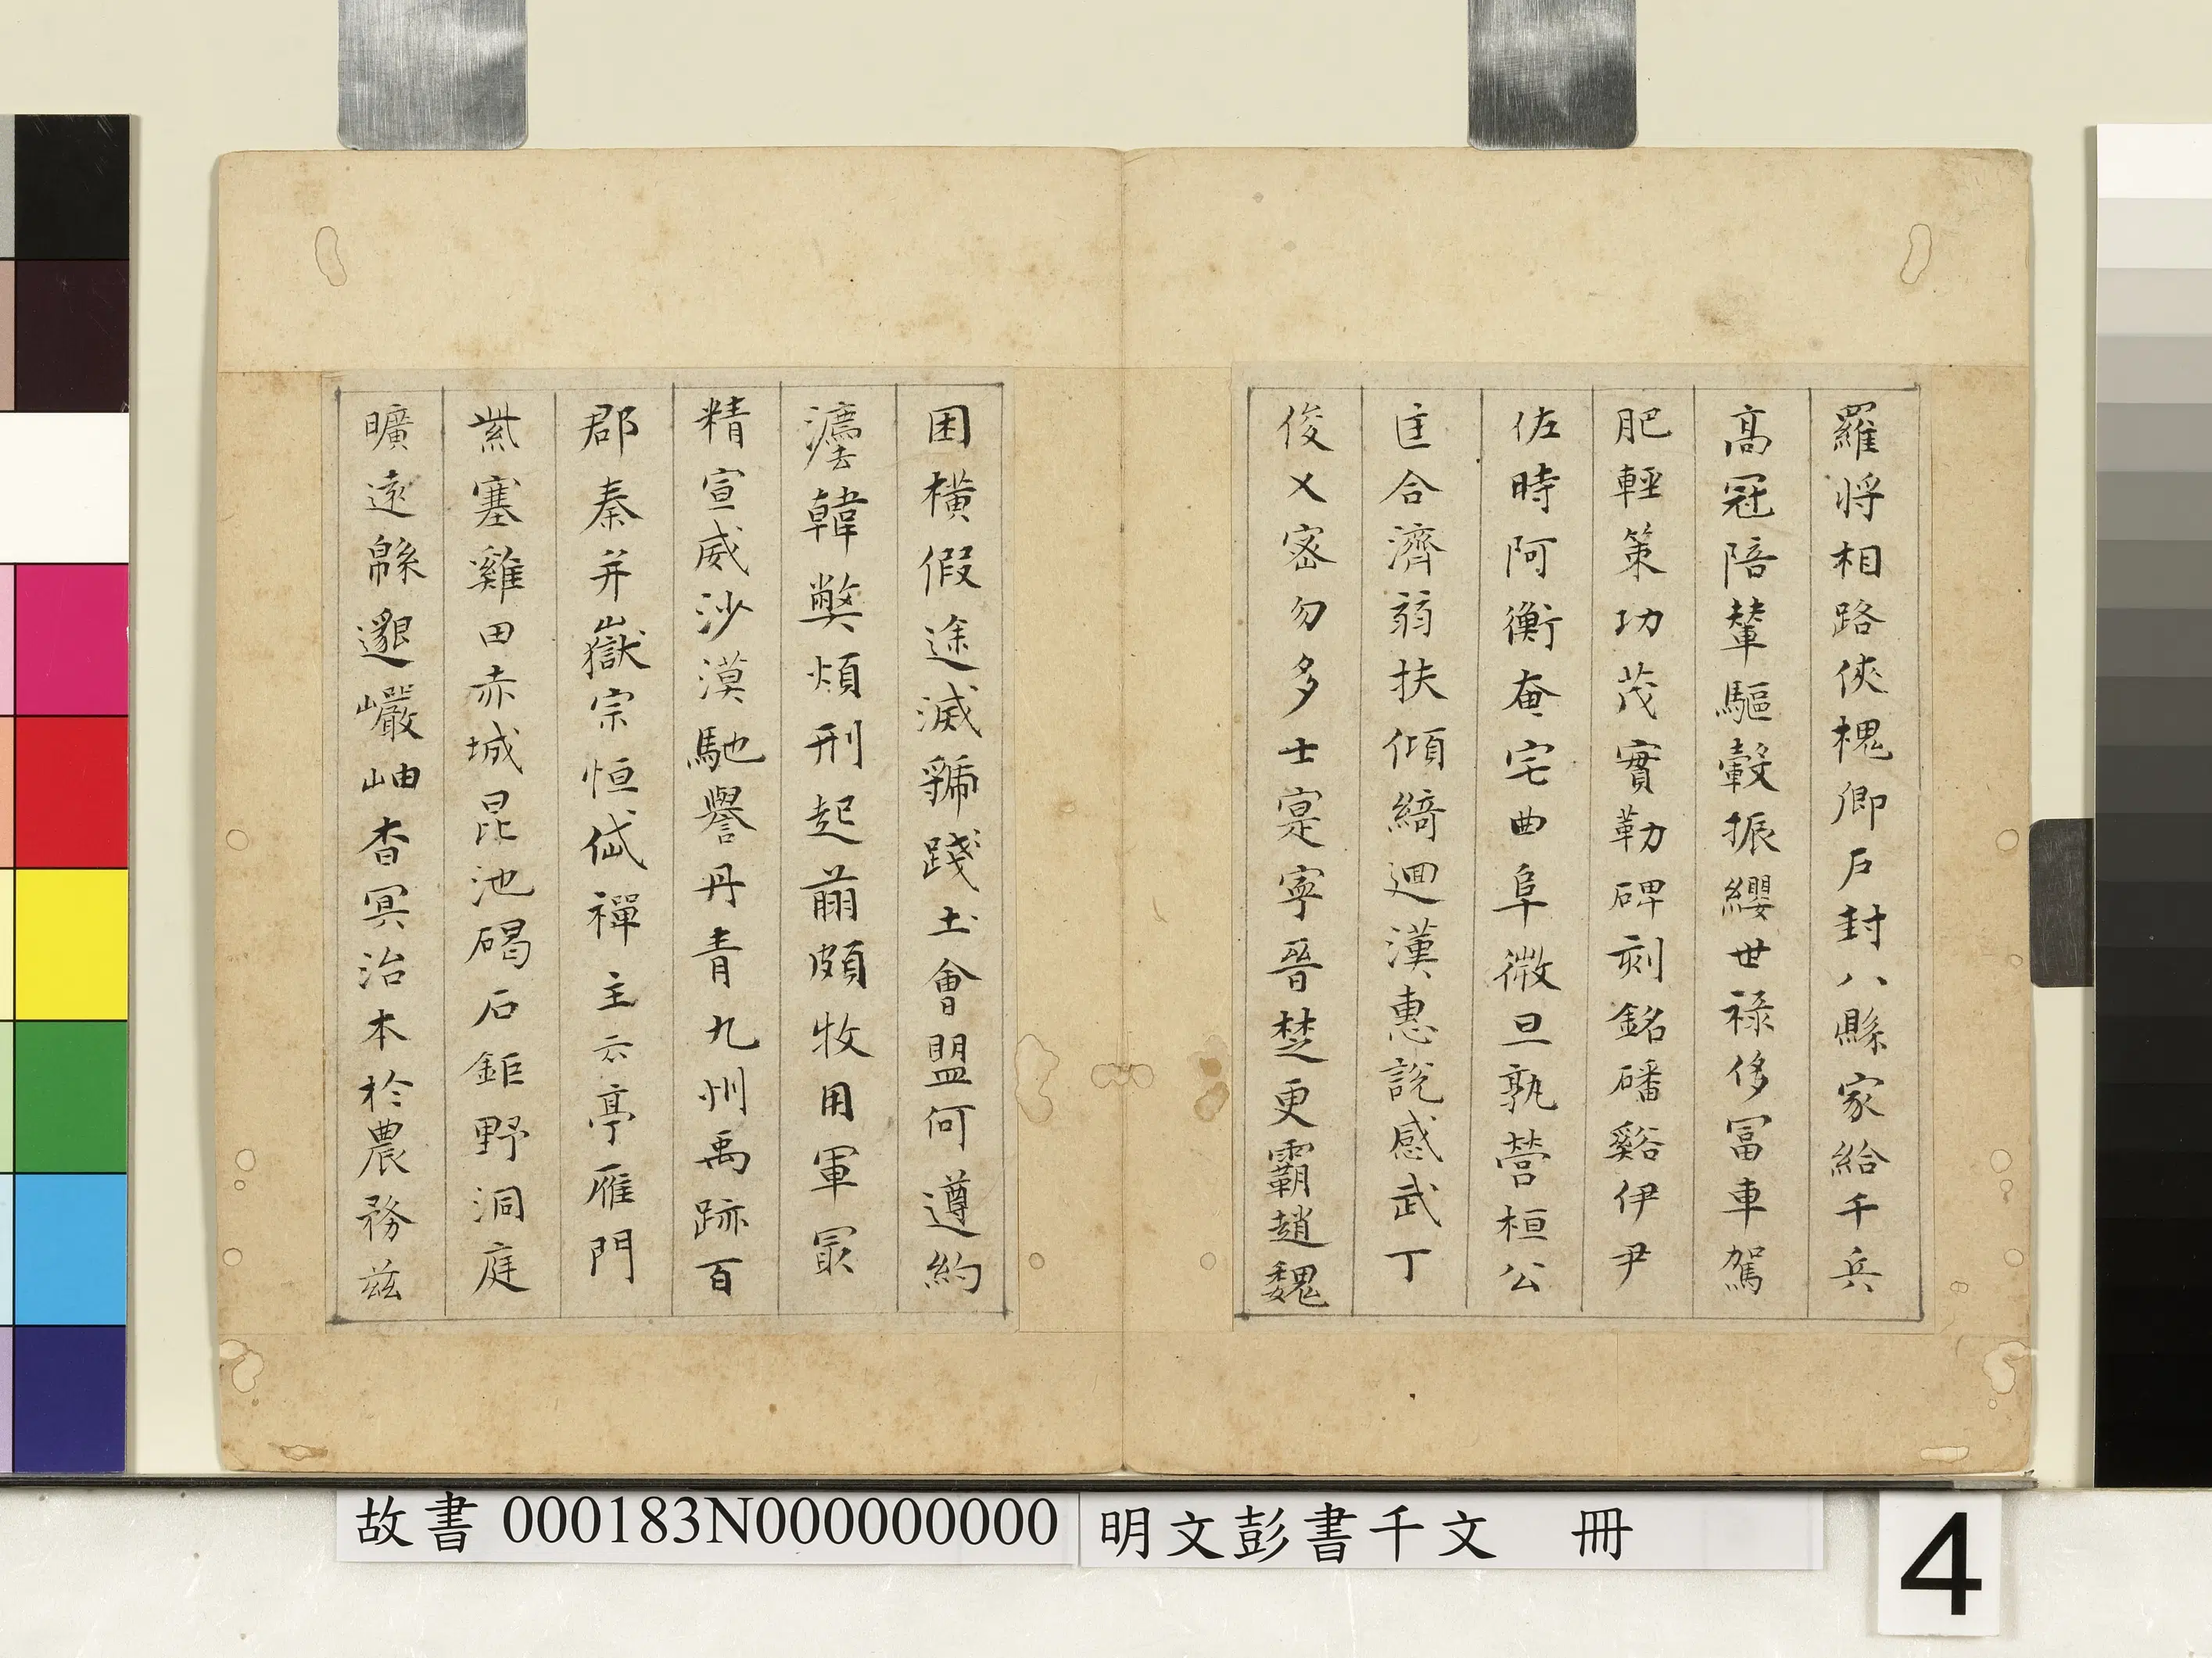 羅將相路俠槐卿戶封八縣家給千兵
高冠陪輦驅轂振纓世祿侈冨車駕
肥輕策功茂實勒碑刻銘磻谿伊尹
佐時阿衡奄宅曲阜微旦孰營桓公
匡合濟弱扶傾綺迴漢惠說感武丁
俊乂密勿多士寔寧晉楚更霸趙魏
困橫假途滅虢踐土會盟何遵約
灋韓弊煩刑起翦頗牧用軍冣
精宣威沙漠馳譽丹青九州禹跡百
郡秦并嶽宗恒岱禪主云亭雁門
紫塞雞田赤城昆池碣石鉅野洞庭
曠遠緜邈巖岫杳冥治本於農務茲
故書 000183N000000000
明文彭書千文 冊
4